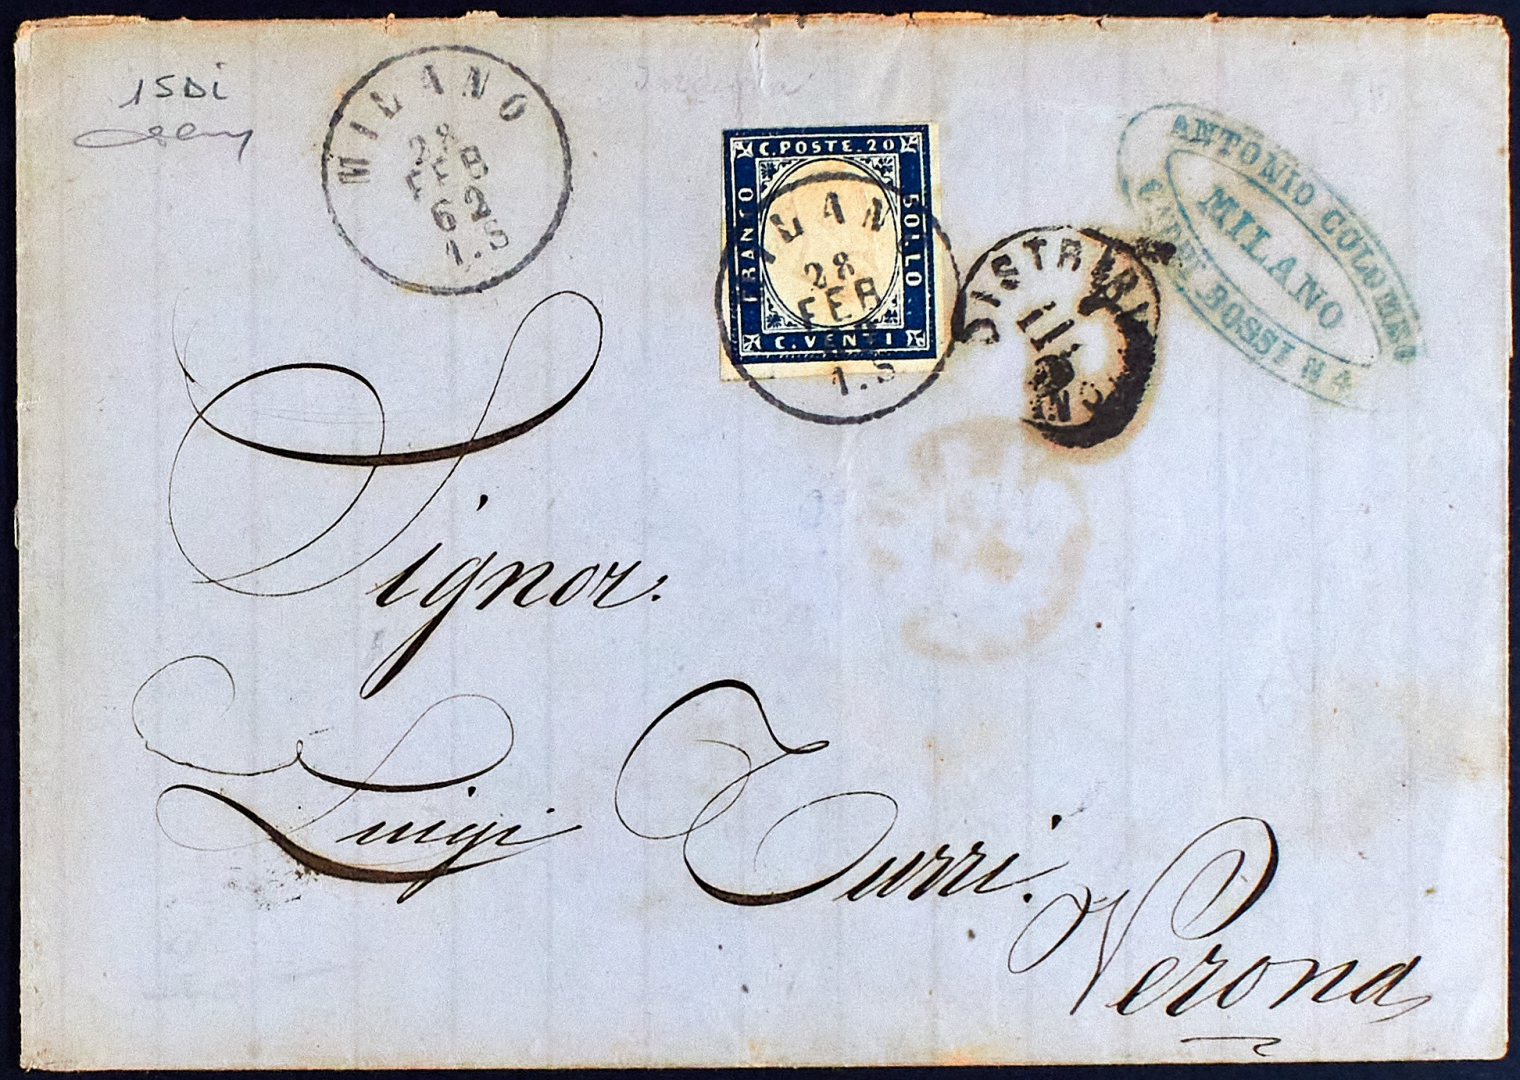 15Di
MILANO
28
FEB
62
1.S
C. POSTE. 20
FRANCO
BOLLO
C. VENTI
MILANO
28
FEB
1.S
DISTRIBU
II
ANTONIO COLOMBO
MILANO
BOSSI N 4
Signor.
Luigi Turri.
Verona